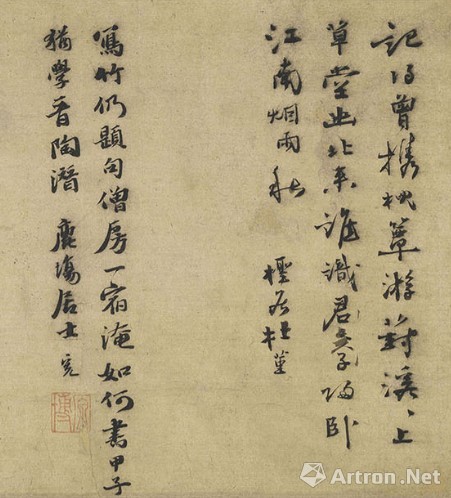 記得曾携枕簟游葑溪〻上
草堂幽北來誰識君子歸卧
江南烟雨秋 檉居杜堇
寫竹仍題句僧房一宿淹如何書甲子
猶學晉陶潛 鹿場居士
Artron.Net